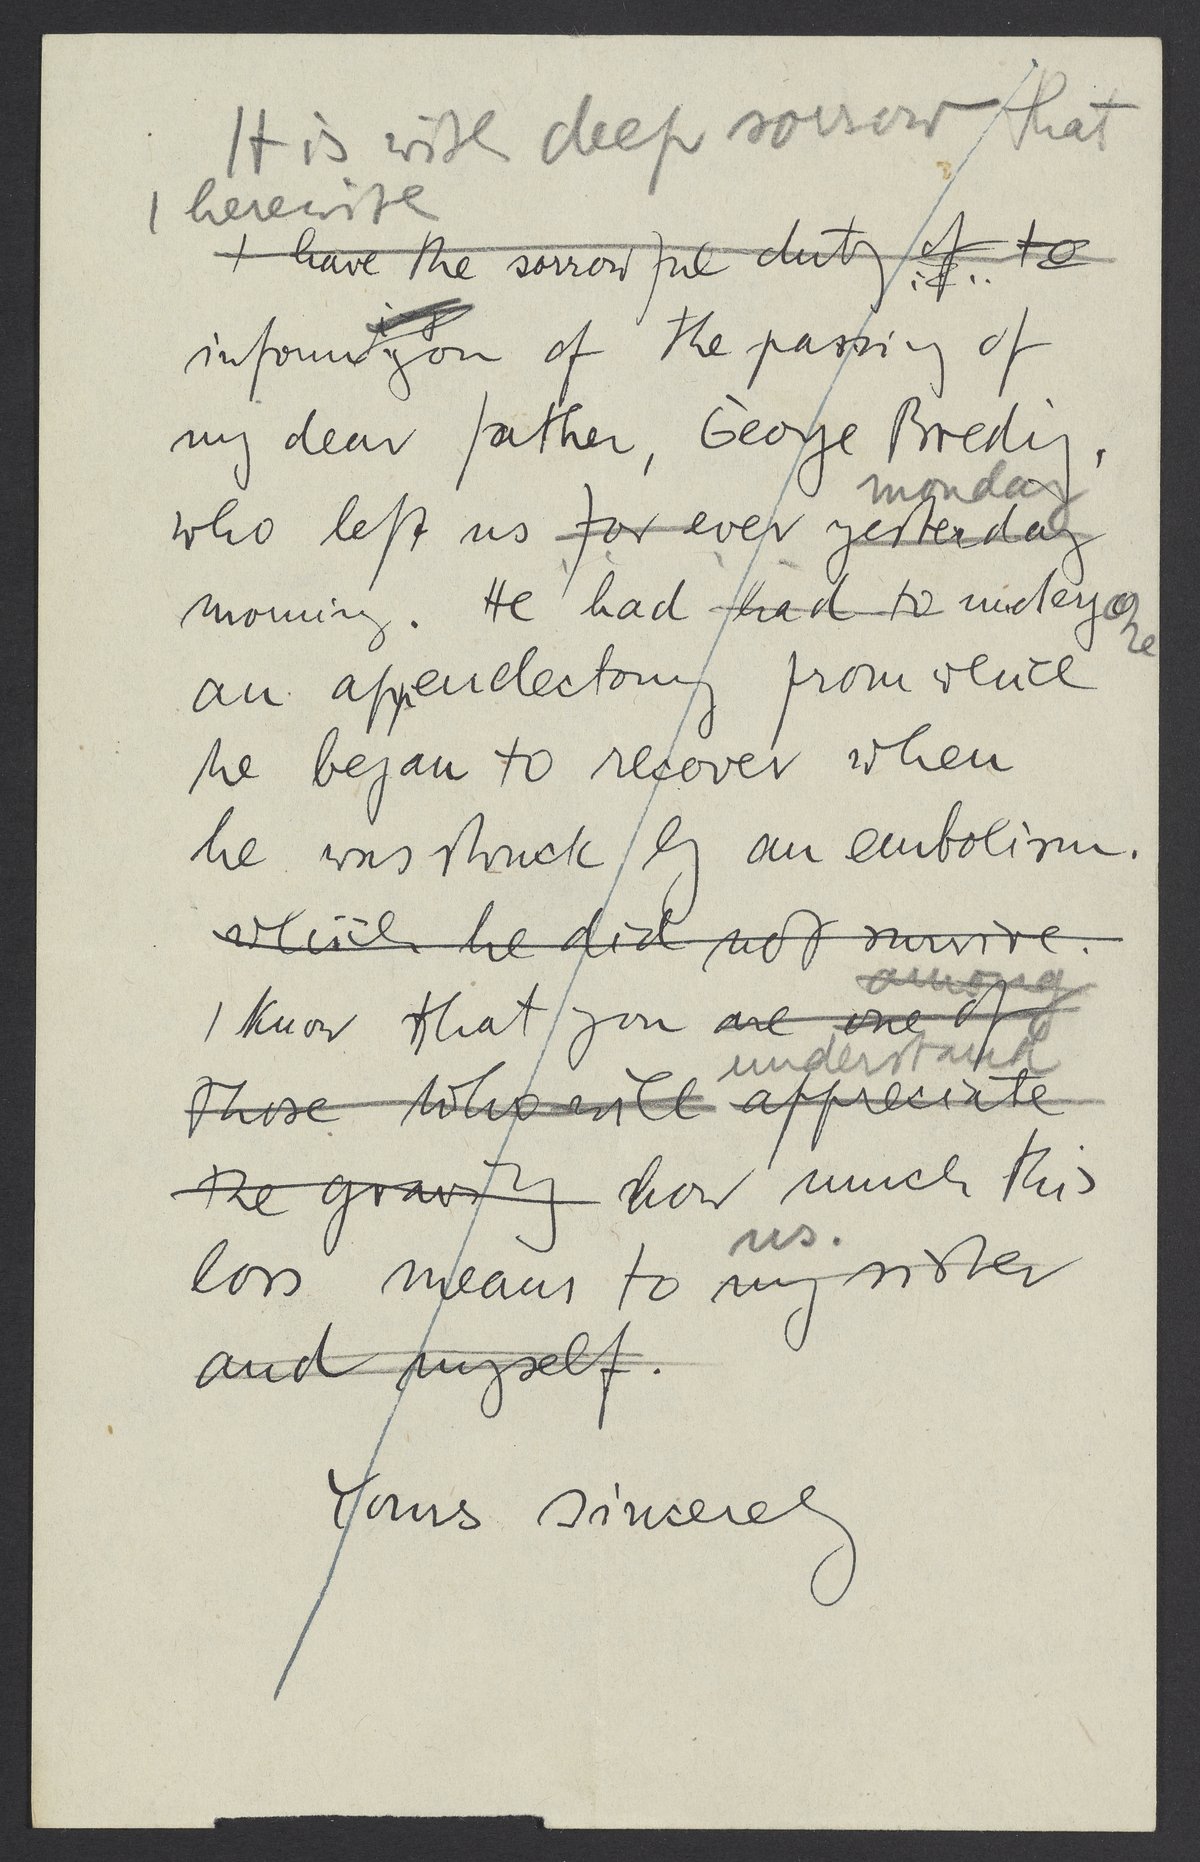 It is with deep sorrow that
I herewith
I have the sorrowful duty of to
inform you of the passing of
my dear father, George Bredig,
monday
who left us for ever yesterday
morning. He had had to undergone
an appendectomy from which
he began to recover when
he was struck by an embolism.
which he did not survive.
among
I know that you are one of
understand
those who will appreciate
the gravity how much this
us.
loss means to my sister
and myself.
Yours sincerely